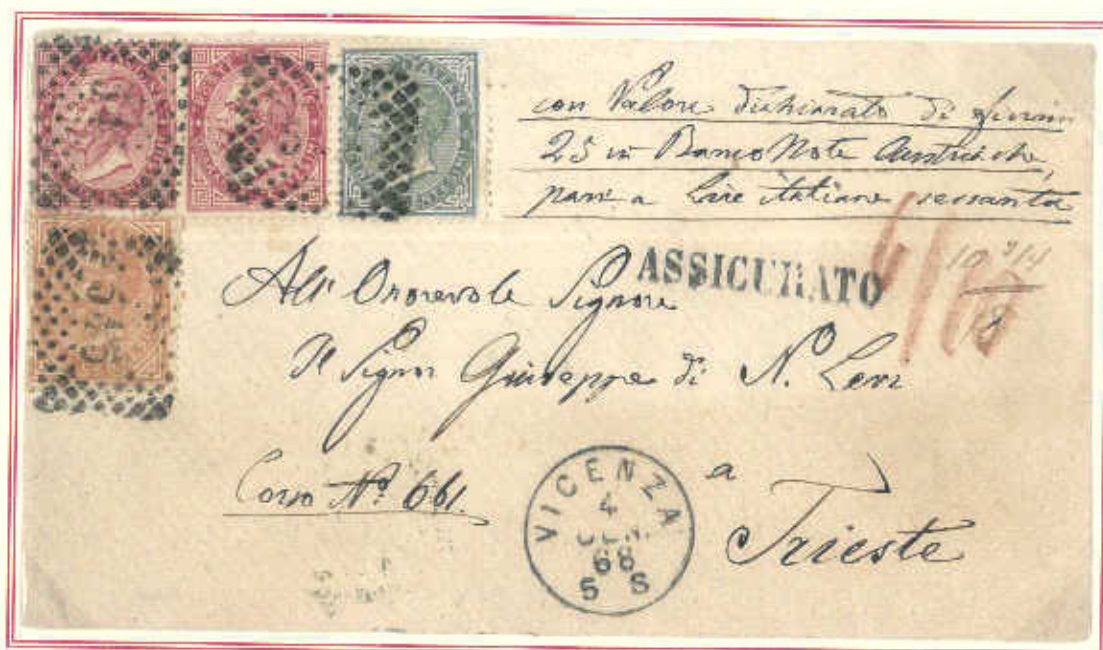 con Valore dichiarato di fiorini
25 in Banco Note Austriache,
pari a Lire italiane sessanta
ASSICURATO
10 3/4
All' Onorevole Signore
Il Signor Giuseppe di N. Levi
Corso Nº 661.
a
Trieste
VICENZA
4
GEN.
68
5 S